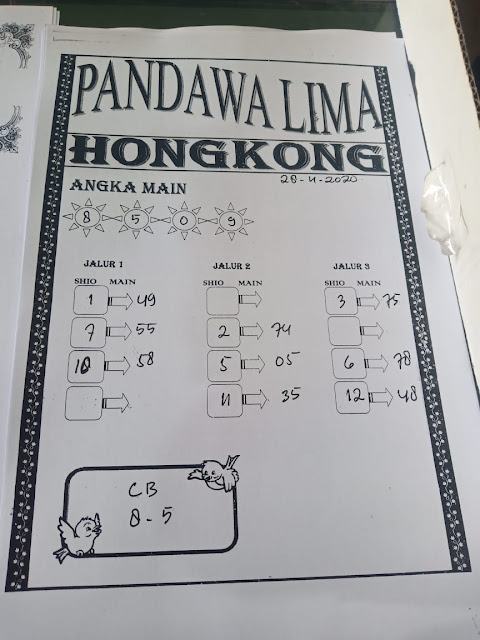 PANDAWA LIMA
HONGKONG
28-11-2020
ANGKA MAIN
8 5 0 9
JALUR 1 JALUR 2 JALUR 3
SHIO MAIN SHIO MAIN SHIO MAIN
1 49 3 75
7 55 2 74
10 58 5 05 6 78
11 35 12 48
CB
8 - 5